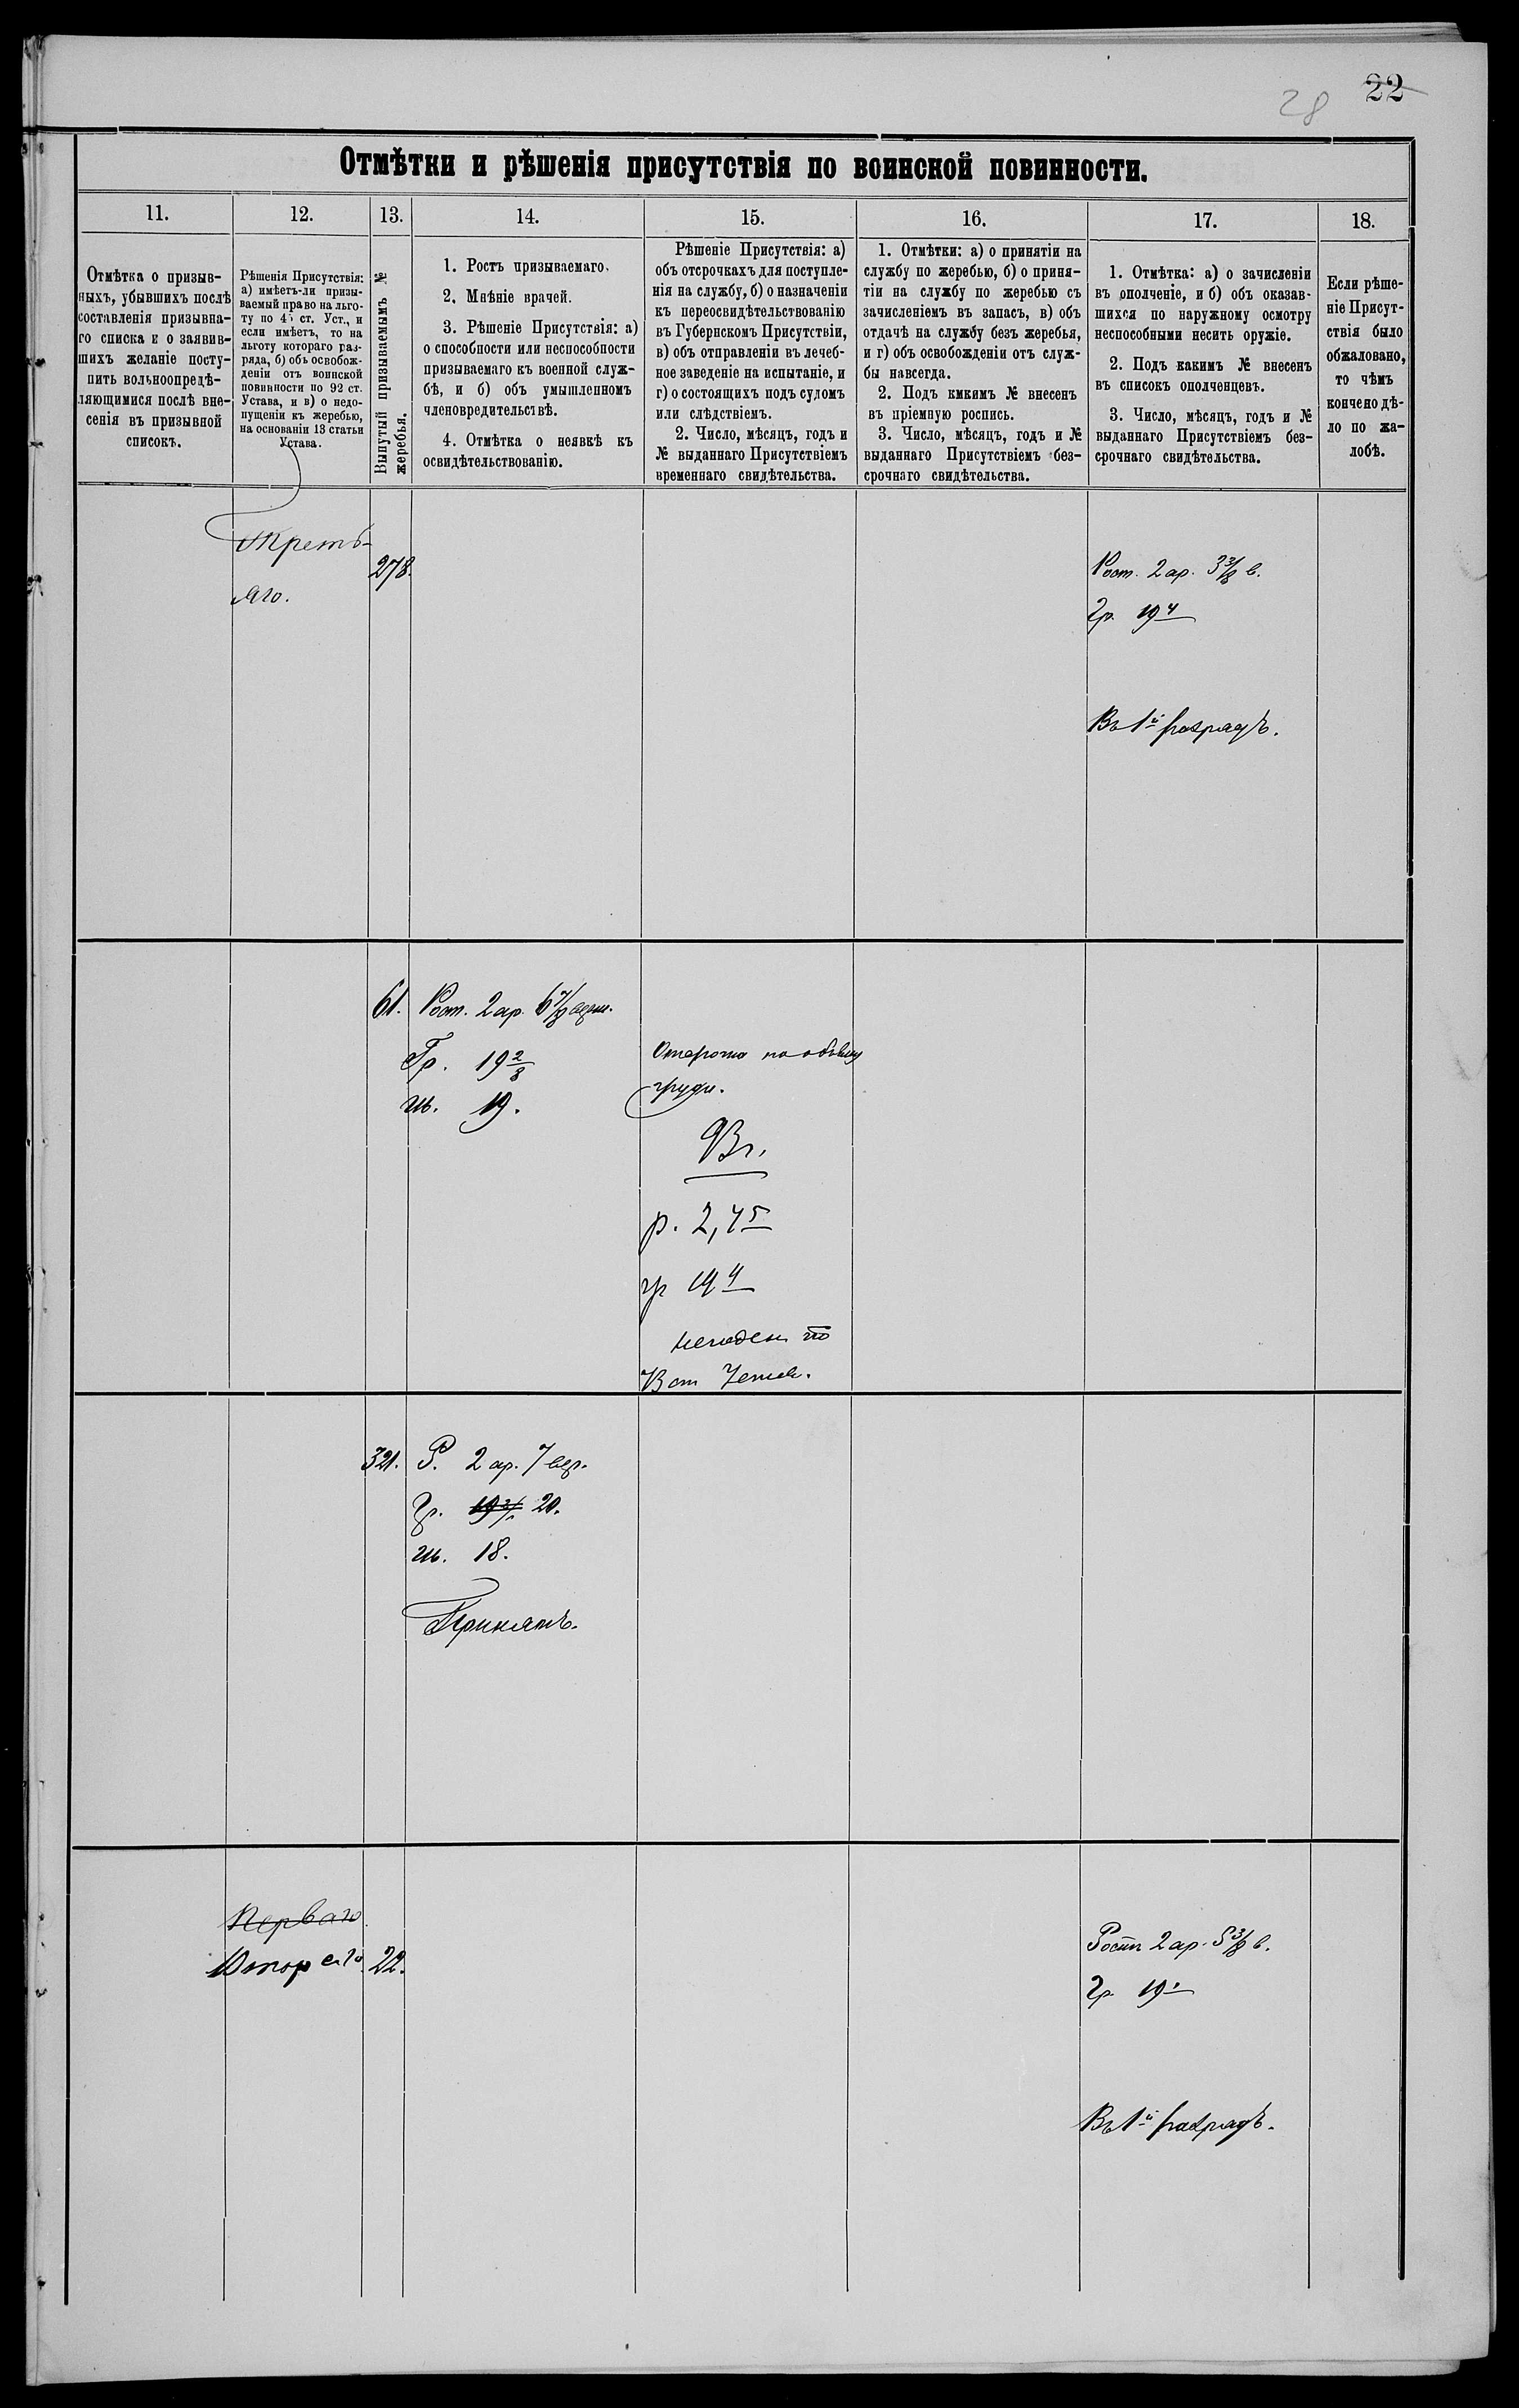 28 22
Отмѣтки и рѣшенія присутствія по воинской повинности.
11.
12.
13.
14.
15.
16.
17.
18.
Отмѣтка о призыв-
ныхъ, убывшихъ послѣ
составленія призывна-
го списка и о заявив-
шихъ желаніе посту-
пить вольноопредѣ-
ляющимися послѣ вне-
сенія въ призывной
списокъ.
Рѣшенія Присутствія:
а) имѣетъ-ли призы-
ваемый право на льго-
ту по 45 ст. Уст., и
если имѣетъ, то на
льготу котораго раз-
ряда, б) объ освобож-
деніи отъ воинской
повинности по 92 ст.
Устава, и в) о недо-
пущеніи къ жеребью,
на основаніи 13 статьи
Устава.
Вынутый призываемымъ №
жеребья.
1. Ростъ призываемаго.
2. Мнѣніе врачей.
3. Рѣшеніе Присутствія: а)
о способности или неспособности
призываемаго къ военной служ-
бѣ, и б) объ умышленномъ
членовредительствѣ.
4. Отмѣтка о неявкѣ къ
освидѣтельствованію.
Рѣшеніе Присутствія: а)
объ отсрочкахъ для поступле-
нія на службу, б) о назначеніи
къ переосвидѣтельствованію
въ Губернскомъ Присутствіи,
в) объ отправленіи въ лечеб-
ное заведеніе на испытаніе, и
г) о состоящихъ подъ судомъ
или слѣдствіемъ.
2. Число, мѣсяцъ, годъ и
№ выданнаго Присутствіемъ
временнаго свидѣтельства.
1. Отмѣтки: а) о принятіи на
службу по жеребью, б) о приня-
тіи на службу по жеребью съ
зачисленіемъ въ запасъ, в) объ
отдачѣ на службу безъ жеребья,
и г) объ освобожденіи отъ служ-
бы навсегда.
2. Подъ кмкимъ № внесенъ
въ пріемную роспись.
3. Число, мѣсяцъ, годъ и №
выданнаго Присутствіемъ без-
срочнаго свидѣтельства.
1. Отмѣтка: а) о зачисленіи
въ ополченіе, и б) объ оказав-
шихся по наружному осмотру
неспособными несить оружіе.
2. Подъ какимъ № внесенъ
въ списокъ ополченцевъ.
3. Число, мѣсяцъ, годъ и №
выданнаго Присутствіемъ без-
срочнаго свидѣтельства.
Если рѣше-
ніе Присут-
ствія было
обжаловано,
то чѣмъ
кончено дѣ-
ло по жа-
лобѣ.
Треть-
яго.
278.
Рост. 2 ар. 3 3/8 в.
Гр. 19 4
Въ 1й разрядъ.
61.
Рост. 2 ар. 6 7/8 верш.
Гр. 19 2/8
ш. 19.
груди.
р. 2, 4 5
гр 19 4
321.
Р. 2 ар. 7 вер.
Гр. 20.
ш. 18.
Принятъ.
Перваго
Втораго.
22.
Ростъ 2 ар. 5 3/8 в.
Гр. 19 1
Въ 1й разрядъ.